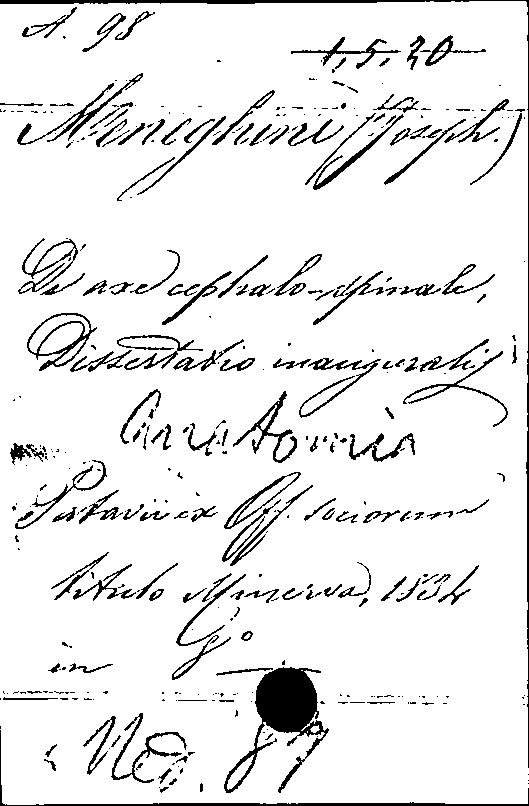 A. 98
1, 5, 20
Meneghini (Joseph.)
De axe cephalo-spinale,
Dissertatio inauguralis
Anatomia
Patavii ex Off. sociorum
titulo Minerva, 1834
in 8°
Med. 87